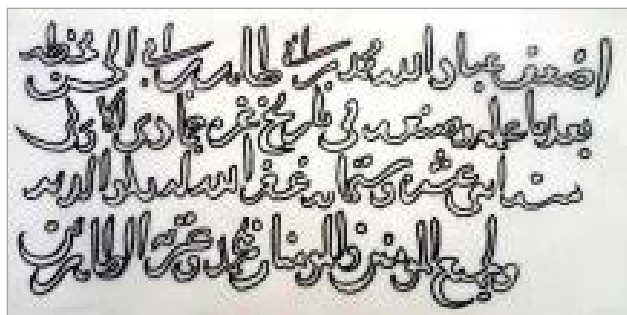 اضعف عباد الله محمد بن ابي طاهر بن ابي الحسن بخطه
بعد ما عمله و صنعه في تاريخ غره جمادى الاولى
سنه اثنى عشره و ستمايه غفر الله له و لوالديه
و لجميع المومنين و المومنات بمحمد و عترته الطاهرين